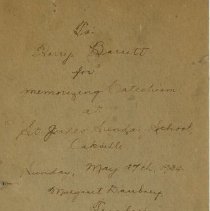 To
Harry Barrett
for
memorizing Catechism
at
St Judes Sunday School,
Oakville
Sunday, May 17th,
Margaret